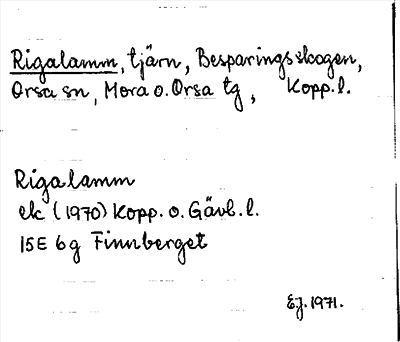 Rigalamm, tjärn, Besparingsskogen,
Orsa sn, Mora o. Orsa tg, Kopp. l.
Rigalamm
ek (1970) Kopp. o. Gävl. l.
15E 6g Finnberget
E.J. 1971.